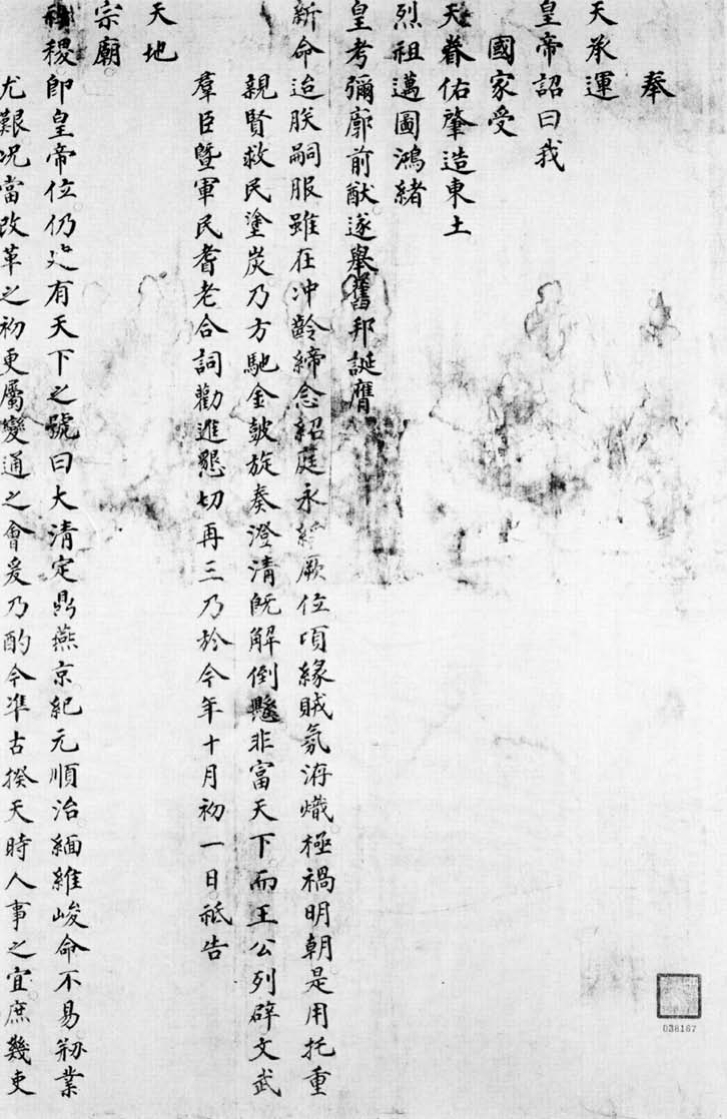 奉
天承運
皇帝詔曰我
國家受
天眷佑肇造東土
烈祖邁圖鴻緒
皇考彌廓前猷遂舉舊邦誕膺
新命迨朕嗣服雖在冲齡締念紹庭永綏厥位頃緣賊氛洊熾極禍明朝是用托重
親賢救民塗炭乃方馳金皷旋奏澄清旣解倒懸非富天下而王公列辟文武
羣臣暨軍民耆老合詞勸進懇切再三乃於今年十月初一日祗告
天地
宗廟
稷卽皇帝位仍建有天下之號曰大清定鼎燕京紀元順治緬維峻命不易刱業
尤艱况當改革之初更屬變通之會爰乃酌今準古揆天時人事之宜庶幾吏
038167